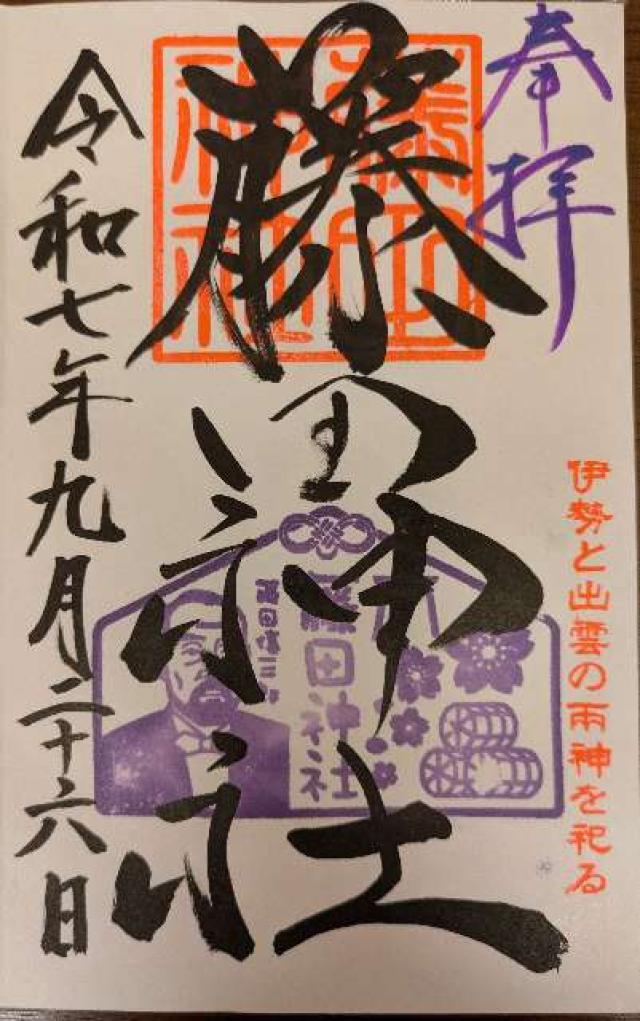 奉拝
伊勢と出雲の両神を祀る
藤田神社
藤田神社
藤田神社
令和七年九月二十六日